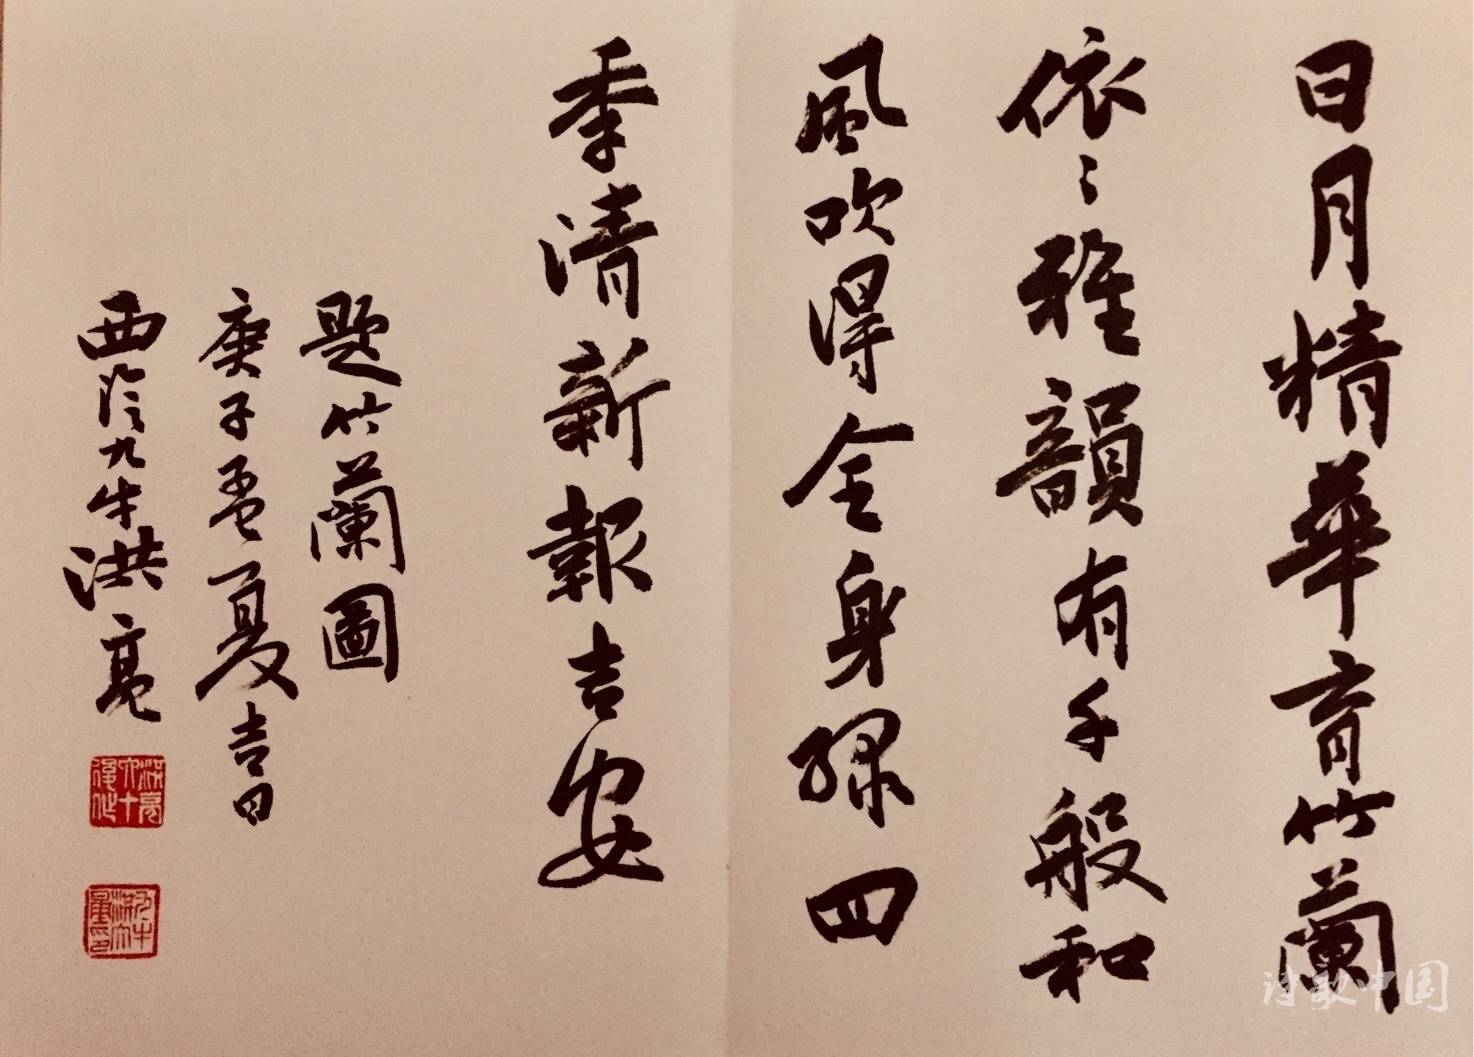 日月精華育竹蘭
依〻雅韻有千般和
風吹得全身綠四
季清新報吉安
題竹蘭圖
庚子孟夏吉日
西泠九牛洪亮
诗歌中国